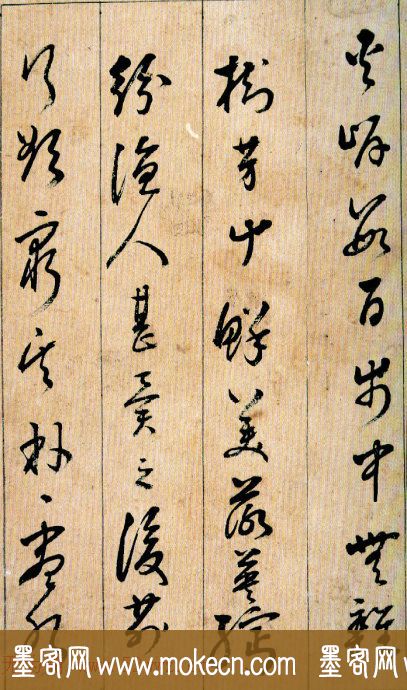 夾岸數百步中無雜
樹芳艸鮮美落英繽
紛漁人甚異之復前
行欲窮其林〻盡水
墨客网 www.mokecn.com 墨客网